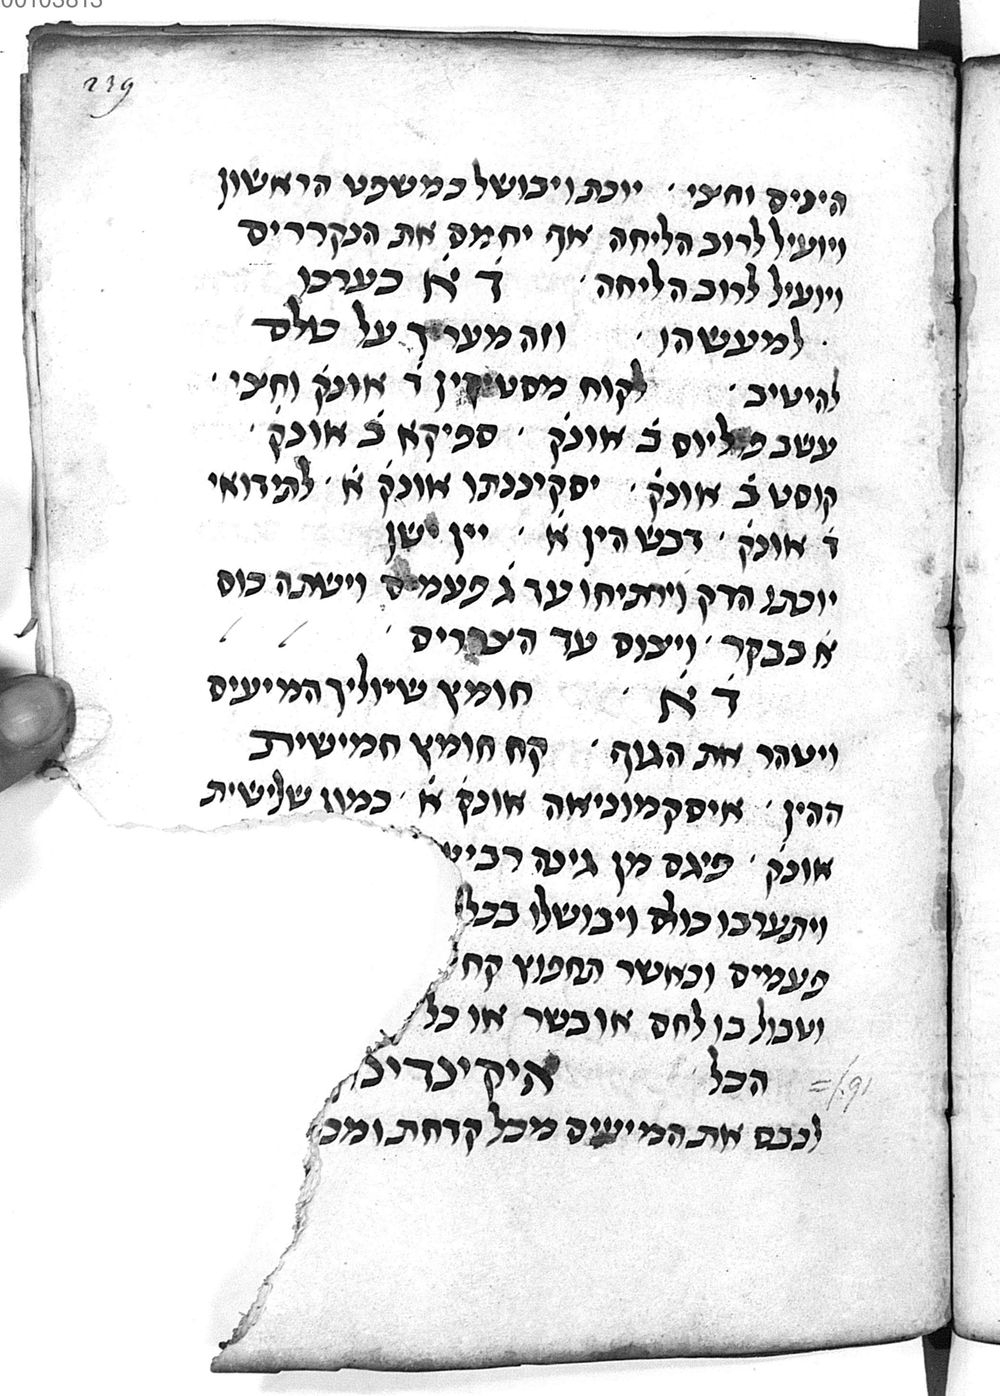 00103813
239
היניס וחצי · יוכת ויבושל כמשפט הראשון
ויועיל לרוב הליחה אף יחמם את הנקרריס
ויועיל לרוב הליחה · ד א כערכו
למעשהו · וזה מעריך על טולס
להיטיב · לקוח מסטיקין ד אונק וחצי ·
עשב פוליוס ב אונק · ספיקא ב אונק ·
קוסט ב אונק · יסקיננתו אונק א · לתידואי
ד אונק · דבש הין א · יין ישן
יוכתו הדק וירתיחו עד ג פעמים וישתה כוס
א בבקר · ויצום עד הצהריס ·
ד א · חומץ שיוליך המיעיס
ויטהר את הגוף · קח חומץ חמישית
ההין · איסקמוניאה אונק א · כמון שלישית
אונק · פיגס מן גינה רביע
ויתערבו כולם ויבושלו בכל
פעמיס וכאשר תחפוץ קח
וטבול בו לחם או בשר או כל
הכל · איקינדינ
לנכס את המיעיס מכל קדחת ומכ